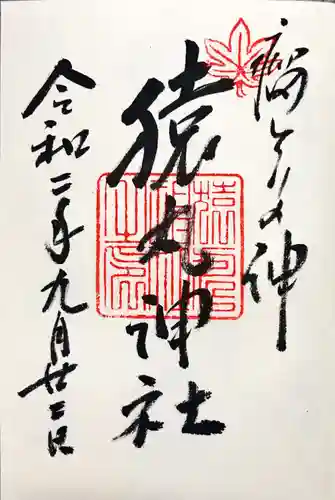 瘤とりの神
猿丸神社
令和二年九月廿二日